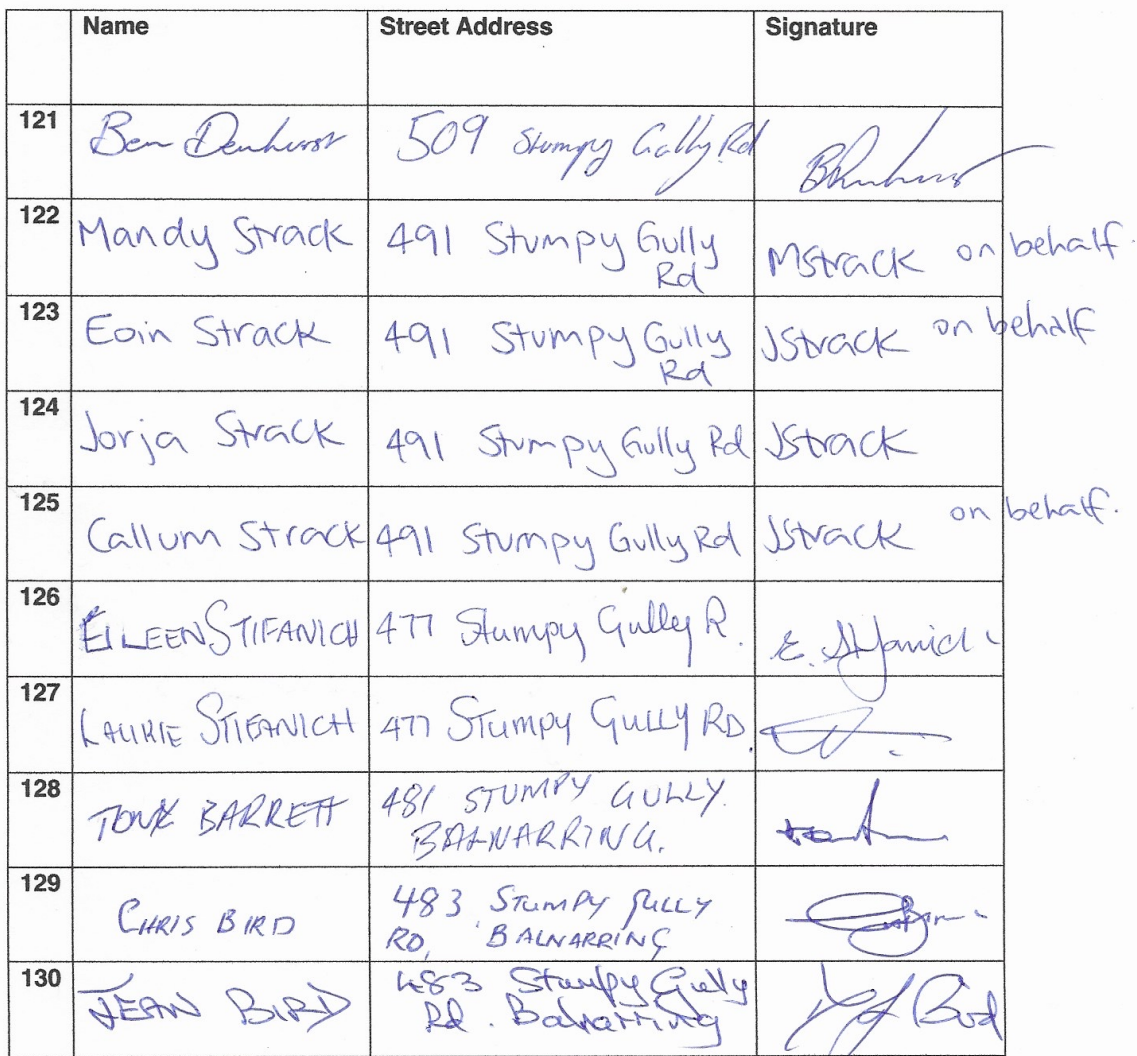 Name Street Address Signature
121 Ben Denhurst 509 Stumpy Gully Rd
122 Mandy Strack 491 Stumpy Gully Rd MStrack on behalf.
123 Eoin Strack 491 Stumpy Gully Rd JStrack on behalf
124 Jorja Strack 491 Stumpy Gully Rd JStrack
125 Callum Strack 491 Stumpy Gully Rd JStrack on behalf.
126 EILEEN STIFANICH 477 Stumpy Gulley R.
127 LAURIE STIFANICH 477 STumpy GULLY RD.
128 TONY BARRETT 481 STUMPY GULLY.
BALNARRING.
129 CHRIS BIRD 483 STUMPY GULLY
RD, BALNARRING
130 JEAN BIRD 483 Stumpy Gully
Rd. Balnarring Bird